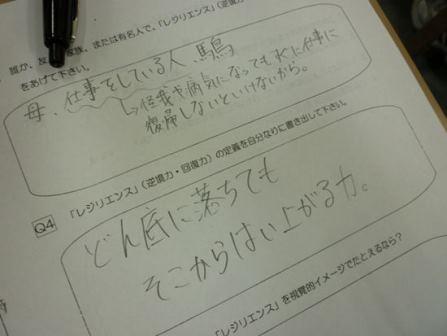 誰か、友　家族、または有名人で、「レジリエンス」（逆境力
をあげて下さい。
母、仕事をしている人、馬鳥
↳怪我や病気になっても次に仕事に
復帰しないといけないから。
Q4 「レジリエンス」（逆境力・回復力）の定義を自分なりに書き出して下さい。
どん底に落ちても
そこからはい上がる力。
「レジリエンス」を視覚的イメージでたとえるなら？